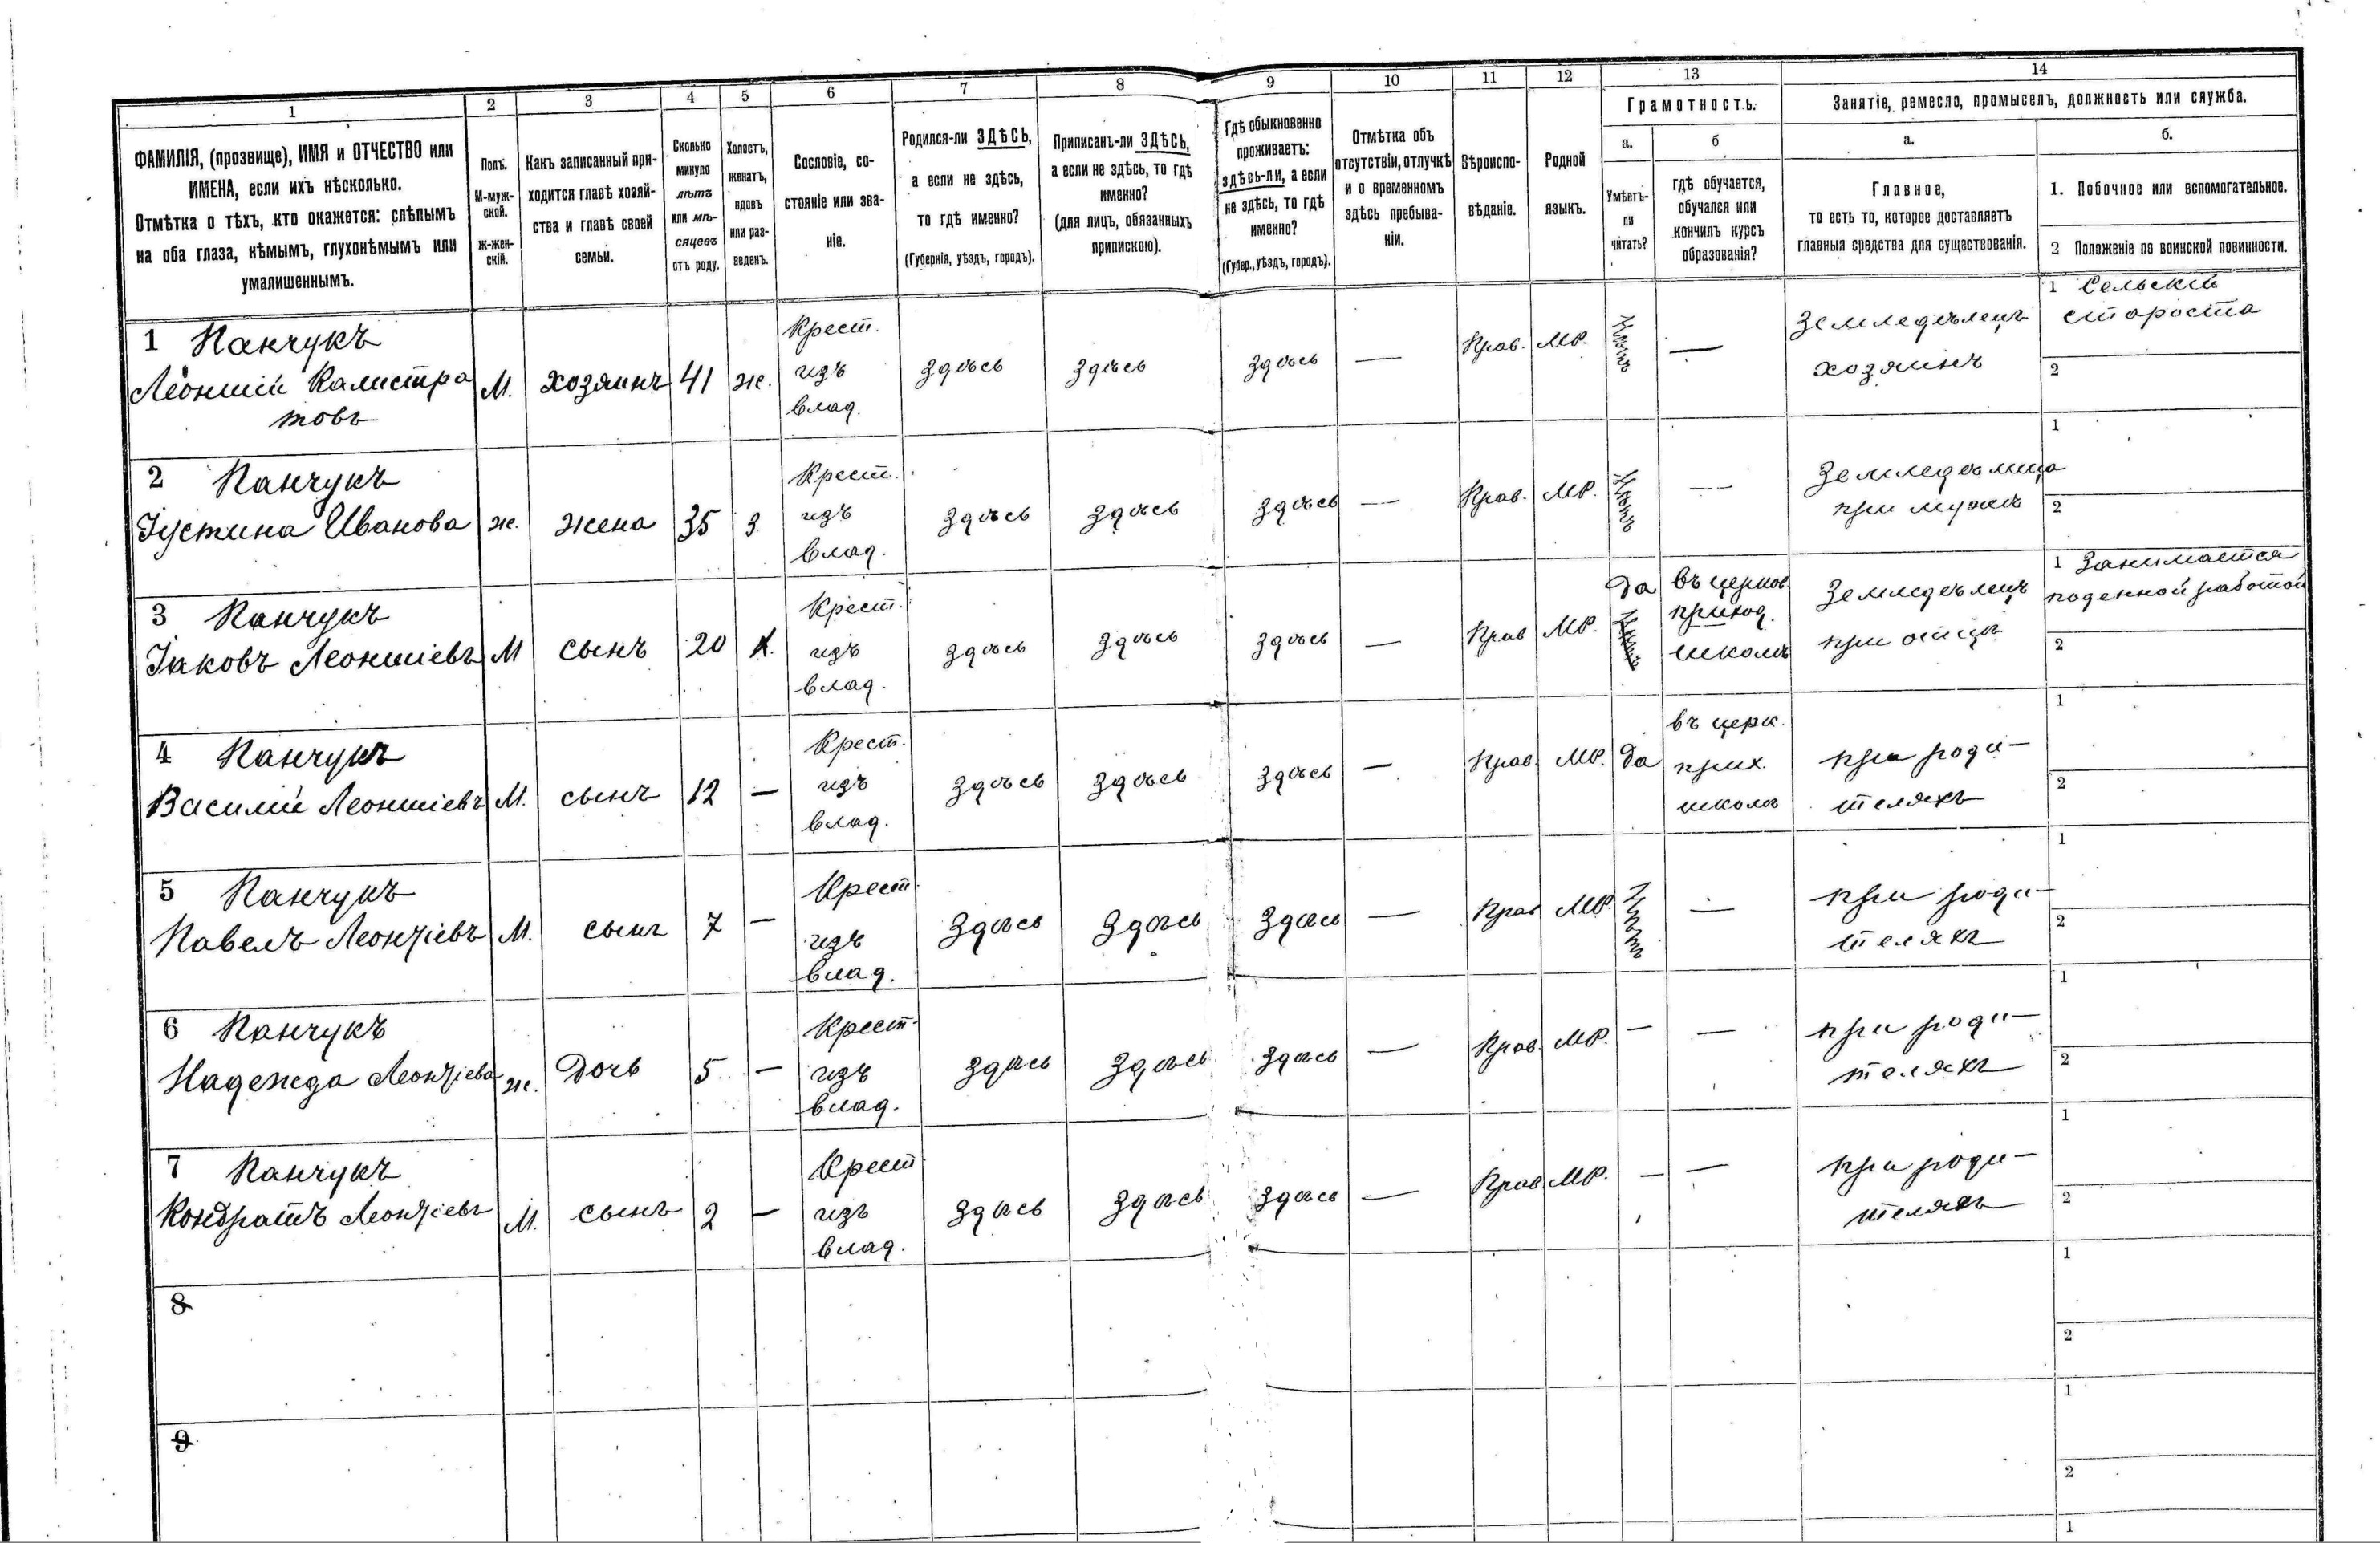 1 2 3 4 5 6 7 8 9 10 11 12 13 14
ФАМИЛІЯ, (прозвище), ИМЯ и ОТЧЕСТВО или
ИМЕНА, если ихъ нѣсколько.
Отмѣтка о тѣхъ, кто окажется: слѣпымъ
на оба глаза, нѣмымъ, глухонѣмымъ или
умалишеннымъ.
Полъ.
М-муж-
ской.
Ж-жен-
скій.
Какъ записанный при-
ходится главѣ хозяй-
ства и главѣ своей
семьи.
Сколько
минуло
лѣтъ
или мѣ-
сяцевъ
отъ роду.
Холостъ,
женатъ,
вдовъ
или раз-
веденъ.
Сословіе, со-
стояніе или зва-
ніе.
Родился-ли ЗДѢСЬ,
а если не здѣсь,
то гдѣ именно?
(Губернія, уѣздъ, городъ).
Приписанъ-ли ЗДѢСЬ,
а если не здѣсь, то гдѣ
именно?
(для лицъ, обязанныхъ
припискою).
Гдѣ обыкновенно
проживаетъ:
здѣсь-ли, а если
не здѣсь, то гдѣ
именно?
(Губер., уѣздъ, городъ).
Отмѣтка объ
отсутствіи, отлучкѣ
и о временномъ
здѣсь пребыва-
ніи.
Вѣроиспо-
вѣданіе.
Родной
языкъ.
Грамотность.
а.
Умѣетъ-
ли
читать?
б
гдѣ обучается,
обучался или
кончилъ курсъ
образованія?
Занятіе, ремесло, промыселъ, должность или служба.
а.
Главное,
то есть то, которое доставляетъ
главныя средства для существованія.
б.
1. Побочное или вспомогательное.
2 Положеніе по воинской повинности.
1 Панчукъ
Леонтій Калистра
товъ
М.
хозяинъ
41
ж.
Крест.
изъ
влад.
здѣсь
здѣсь
здѣсь
—
Прав.
МР.
Нѣтъ
—
Земледѣлецъ
хозяинъ
1 Сельскій
староста
2
2 Панчукъ
Іустина Иванова
ж.
жена
35
з.
Крест.
изъ
влад.
здѣсь
здѣсь
здѣсь
—
Прав.
МР.
Нѣтъ
—
Земледѣлица
при мужѣ
1
2
3 Панчукъ
Іаковъ Леонтіевъ
М
сынъ
20
х.
Крест.
изъ
влад.
здѣсь
здѣсь
здѣсь
—
Прав
МР.
да
Нѣтъ
въ церков.
приход.
школѣ
Земледѣлецъ
при отцѣ
1 Занимается
поденной работой
2
4 Панчукъ
Василій Леонтіевъ
М.
сынъ
12
—
Крест.
изъ
влад.
здѣсь
здѣсь
здѣсь
—
Прав.
МР.
да
въ церк.
прих.
школѣ
при роди-
теляхъ
1
2
5 Панчукъ
Павелъ Леонтіевъ
М.
сынъ
7
—
Крест.
изъ
влад.
здѣсь
здѣсь
здѣсь
—
Прав
МР.
Нѣтъ
—
при роди-
теляхъ
1
2
6 Панчукъ
Надежда Леонтіева
ж.
Дочь
5
—
Крест.
изъ
влад.
здѣсь
здѣсь
здѣсь
—
Прав.
МР.
—
—
при роди-
теляхъ
1
2
7 Панчукъ
Кондратъ Леонтіевъ
М.
сынъ
2
—
Крест
изъ
влад.
здѣсь
здѣсь
здѣсь
—
Прав
МР.
—
—
при роди-
теляхъ
1
2
8
1
2
9
1
2
1